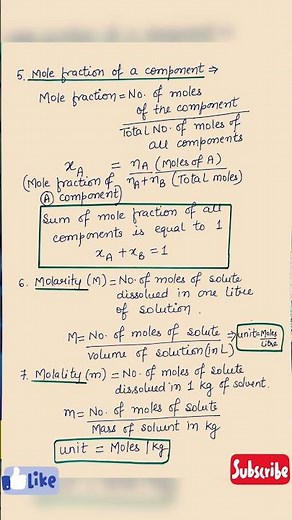 5. Mole fraction of a component ⇒
Mole fraction = No. of moles
of the component
Total No. of moles of
all components
xA = nA (Moles of A)
nA+nB (Total moles)
(Mole fraction of
A component)
Sum of mole fraction of all
components is equal to 1
xA + xB = 1
6. Molarity (M) = No. of moles of solute
dissolved in one litre
of solution.
M = No. of moles of solute → unit = Moles
Volume of solution (in L) Litre
7. Molality (m) = No. of moles of solute
dissolved in 1 kg of solvent.
m = No. of moles of solute
Mass of solvent in kg
unit = Moles / kg
Like
Subscribe